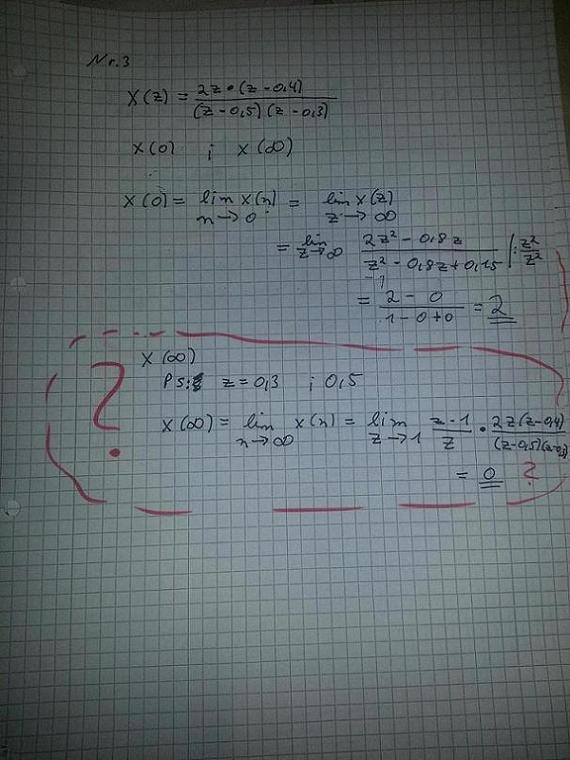 Nr.3
X(z) = 2z·(z-0,4) / (z-0,5)(z-0,3)
x(0) ; x(∞)
x(0) = lim n→0 x(n) = lim z→∞ X(z)
= lim z→∞ 2z²-0,8z / z²-0,8z+0,15 | : z²/z²
= 2-0 / 1-0+0 = 2
?
x(∞)
PS: z=0,3 ; 0,5
x(∞) = lim n→∞ x(n) = lim z→1 z-1/z · 2z(z-0,4) / (z-0,5)(z-0,3)
= 0 ?